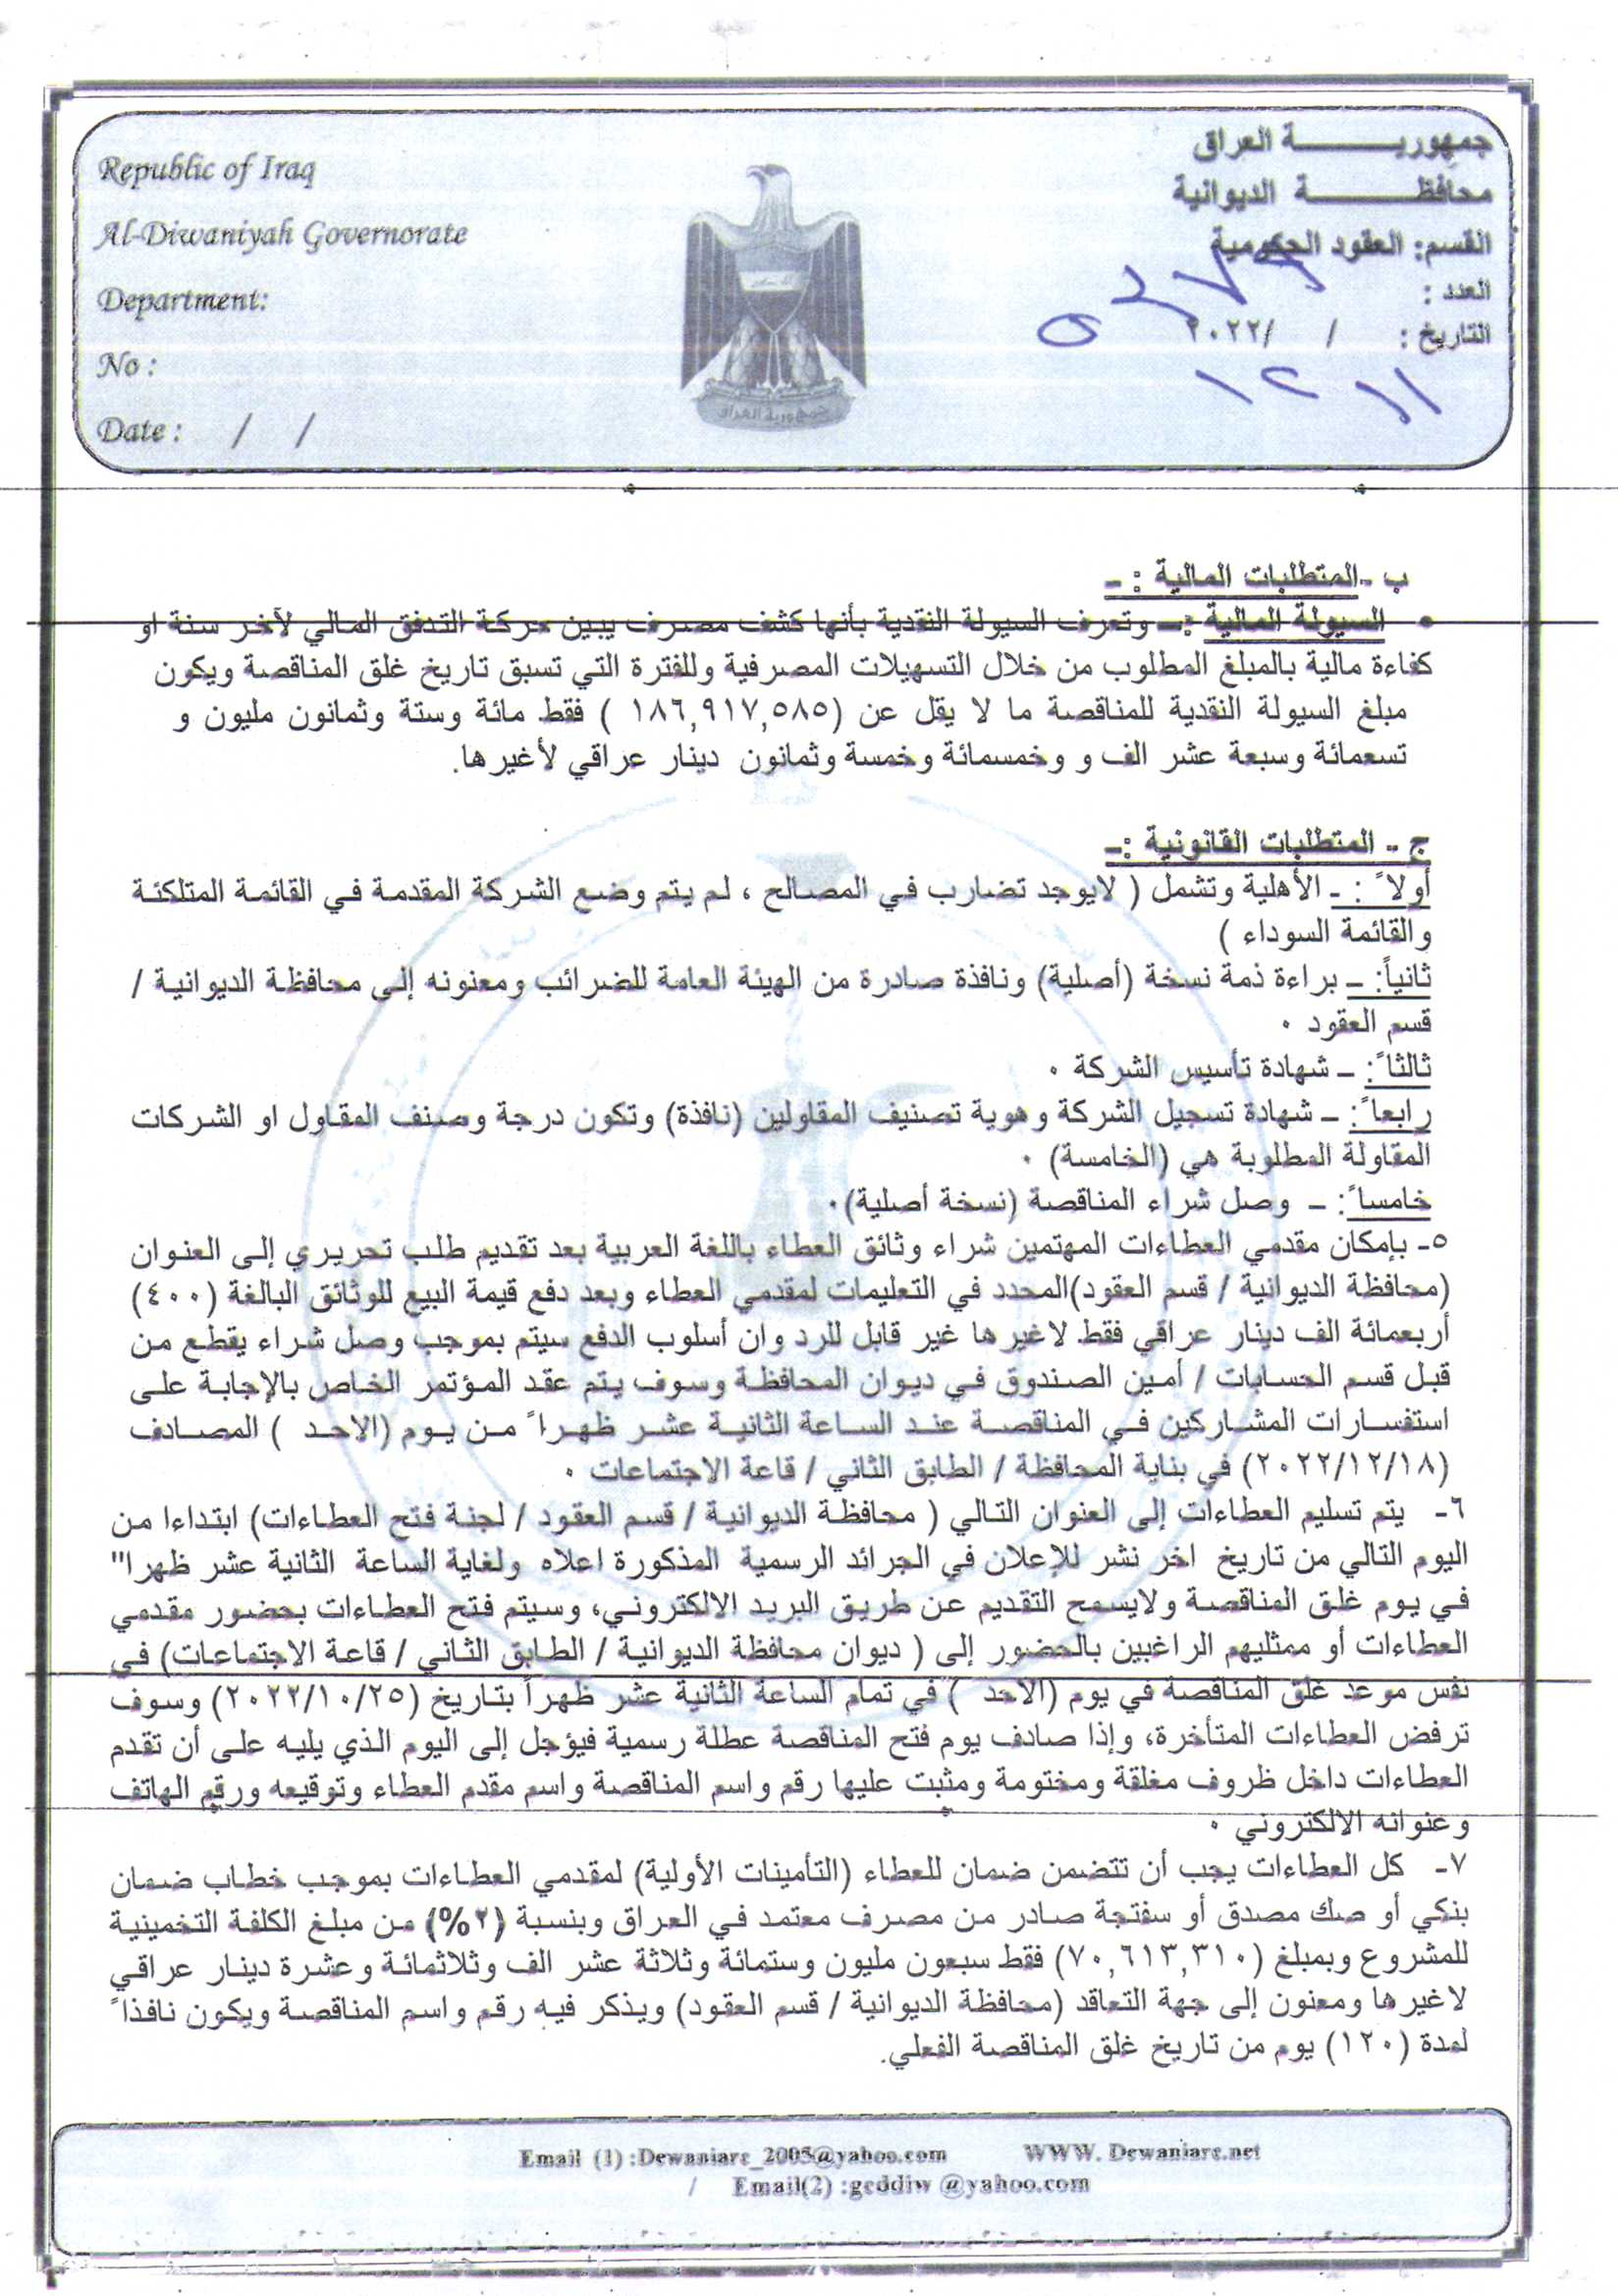 جمهورية العراق
محافظة الديوانية
القسم: العقود الحكومية
العدد :
التاريخ : / /٢٠٢٢
Republic of Iraq
Al-Diwaniyah Governorate
Department:
No :
Date : / /
جمهورية العراق
ب -المتطلبات المالية : -
• السيولة المالية :- وتعرف السيولة النقدية بأنها كشف مصرف يبين حركة التدفق المالي لآخر سنة او
كفاءة مالية بالمبلغ المطلوب من خلال التسهيلات المصرفية وللفترة التي تسبق تاريخ غلق المناقصة ويكون
مبلغ السيولة النقدية للمناقصة ما لا يقل عن (١٨٦,٩١٧,٥٨٥ ) فقط مائة وستة وثمانون مليون و
تسعمائة وسبعة عشر الف و وخمسمائة وخمسة وثمانون دينار عراقي لأغيرها.
ج - المتطلبات القانونية :-
أولا ً : - الأهلية وتشمل ( لايوجد تضارب في المصالح ، لم يتم وضع الشركة المقدمة في القائمة المتلكئة
والقائمة السوداء )
ثانياً: - براءة ذمة نسخة (أصلية) ونافذة صادرة من الهيئة العامة للضرائب ومعنونه إلى محافظة الديوانية /
قسم العقود ٠
ثالثا ً: - شهادة تأسيس الشركة ٠
رابعا ً: - شهادة تسجيل الشركة وهوية تصنيف المقاولين (نافذة) وتكون درجة وصنف المقاول او الشركات
المقاولة المطلوبة هي (الخامسة) ٠
خامسا ً: - وصل شراء المناقصة (نسخة أصلية)٠
٥- بإمكان مقدمي العطاءات المهتمين شراء وثائق العطاء باللغة العربية بعد تقديم طلب تحريري إلى العنوان
(محافظة الديوانية / قسم العقود)المحدد في التعليمات لمقدمي العطاء وبعد دفع قيمة البيع للوثائق البالغة (٤٠٠)
أربعمائة الف دينار عراقي فقط لاغيرها غير قابل للرد وان أسلوب الدفع سيتم بموجب وصل شراء يقطع من
قبل قسم الحسابات / أمين الصندوق في ديوان المحافظة وسوف يتم عقد المؤتمر الخاص بالإجابة على
استفسارات المشاركين في المناقصة عند الساعة الثانية عشر ظهرا ً من يوم (الاحد ) المصادف
(٢٠٢٢/١٢/١٨) في بناية المحافظة / الطابق الثاني / قاعة الاجتماعات ٠
٦- يتم تسليم العطاءات إلى العنوان التالي ( محافظة الديوانية / قسم العقود / لجنة فتح العطاءات) ابتداءا من
اليوم التالي من تاريخ اخر نشر للإعلان في الجرائد الرسمية المذكورة اعلاه ولغاية الساعة الثانية عشر ظهرا"
في يوم غلق المناقصة ولايسمح التقديم عن طريق البريد الالكتروني، وسيتم فتح العطاءات بحضور مقدمي
العطاءات أو ممثليهم الراغبين بالحضور إلى ( ديوان محافظة الديوانية / الطابق الثاني / قاعة الاجتماعات) في
نفس موعد غلق المناقصة في يوم (الاحد ) في تمام الساعة الثانية عشر ظهراً بتاريخ (٢٠٢٢/١٠/٢٥) وسوف
ترفض العطاءات المتأخرة، وإذا صادف يوم فتح المناقصة عطلة رسمية فيؤجل إلى اليوم الذي يليه على أن تقدم
العطاءات داخل ظروف مغلقة ومختومة ومثبت عليها رقم واسم المناقصة واسم مقدم العطاء وتوقيعه ورقم الهاتف
وعنوانه الالكتروني ٠
٧- كل العطاءات يجب أن تتضمن ضمان للعطاء (التأمينات الأولية) لمقدمي العطاءات بموجب خطاب ضمان
بنكي أو صك مصدق أو سفتجة صادر من مصرف معتمد في العراق وبنسبة (٢%) من مبلغ الكلفة التخمينية
للمشروع وبمبلغ (٧٠,٦١٣,٣١٠) فقط سبعون مليون وستمائة وثلاثة عشر الف وثلاثمائة وعشرة دينار عراقي
لاغيرها ومعنون إلى جهة التعاقد (محافظة الديوانية / قسم العقود) ويذكر فيه رقم واسم المناقصة ويكون نافذا ً
لمدة (١٢٠) يوم من تاريخ غلق المناقصة الفعلي.
Email (1) :Dewaniare_2005@yahoo.com WWW. Dewaniare.net
/ Email(2) :gcddiw @yahoo.com